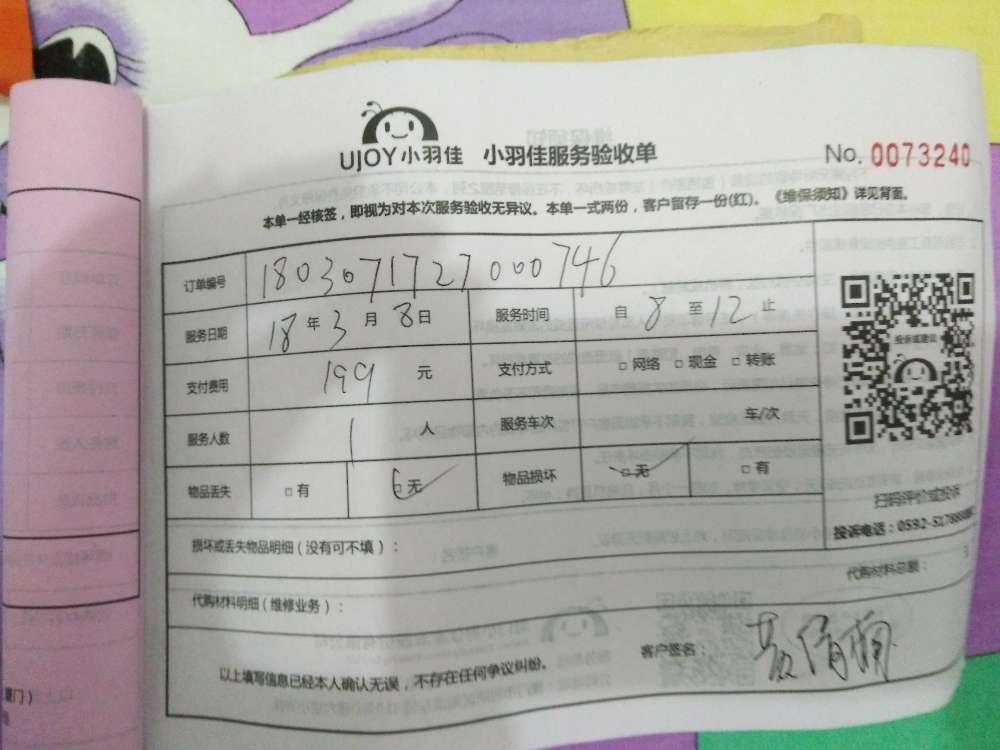 UJOY小羽佳 小羽佳服务验收单 No. 0073240
本单一经核签，即视为对本次服务验收无异议。本单一式两份，客户留存一份(红)。《维保须知》详见背面。
订单编号 1803071727000746
服务日期 18年3月8日 服务时间 自8至12止
支付费用 199元 支付方式 □网络 □现金 □转账
服务人数 1人 服务车次 车/次
物品丢失 □有 □无 物品损坏 □无 □有
投诉或建议
扫码评价或投诉
投诉电话：0592-5178
损坏或丢失物品明细（没有可不填）：
代购材料明细（维修业务）： 代购材料总额：
以上填写信息已经本人确认无误，不存在任何争议纠纷。 客户签名：
厦门）